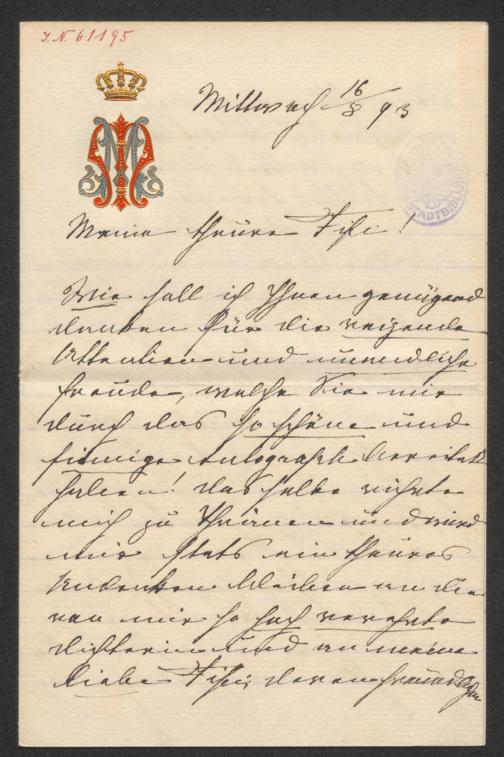 J.N. 61195
Mittwoch 16/8 93
STADTBIBLIOTHEK
Meine theure !
Wie soll ich Ihnen genügend
danken für die reizende
Attention und unendliche
Freude, welche Sie mir
durch das so schöne und
sinnige Autograph bereitet
haben! dasselbe rührte
mich zu Thränen und wird
mir stets ein theures
Andenken bleiben an die
von mir so hoch verehrte
Dichterin und an meine
liebe deren freundlichen